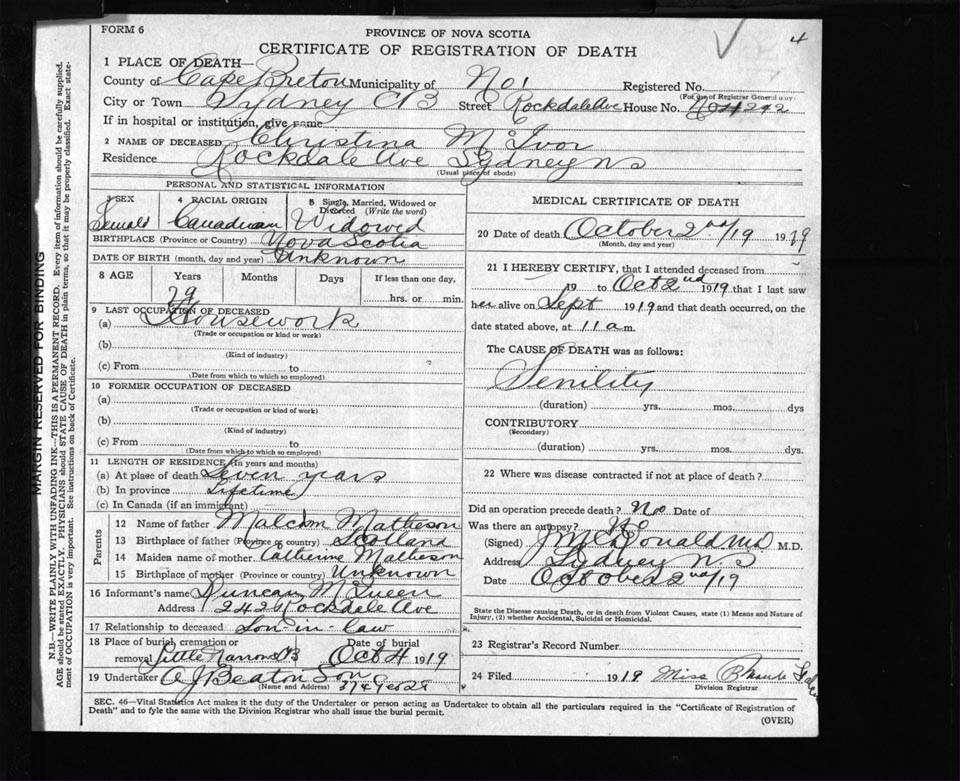 FORM 6
PROVINCE OF NOVA SCOTIA
4
CERTIFICATE OF REGISTRATION OF DEATH
1 PLACE OF DEATH—
County of Cape Breton Municipality of No 1 Registered No.
(For use of Registrar General only)
City or Town Sydney CB Street Rockdale Ave House No. 242
If in hospital or institution, give name
2 NAME OF DECEASED Christina McIvor
Residence Rockdale Ave Sydney NS
(Usual place of abode)
PERSONAL AND STATISTICAL INFORMATION
3 SEX 4 RACIAL ORIGIN 5 Single, Married, Widowed or Divorced (Write the word)
Female Canadian Widowed
BIRTHPLACE (Province or Country) Nova Scotia
DATE OF BIRTH (month, day and year) Unknown
8 AGE Years Months Days If less than one day,
79 hrs. or min.
9 LAST OCCUPATION OF DECEASED
(a) Housework
(Trade or occupation or kind or work)
(b)
(Kind of industry)
(c) From to
(Date from which to which so employed)
10 FORMER OCCUPATION OF DECEASED
(a)
(Trade or occupation or kind of work)
(b)
(Kind of industry)
(c) From to
(Date from which to which so employed)
11 LENGTH OF RESIDENCE (in years and months)
(a) At place of death Seven years
(b) In province Lifetime
(c) In Canada (if an immigrant)
Parents
12 Name of father Malcolm Matheson
13 Birthplace of father (Province or country) Scotland
14 Maiden name of mother Catherine Matheson
15 Birthplace of mother (Province or country) Unknown
16 Informant's name Duncan McQueen
Address 242 Rockdale Ave
17 Relationship to deceased Son-in-law
18 Place of burial, cremation or Date of burial
removal Little Narrows CB Oct 4 1919
19 Undertaker A J Beaton Son
(Name and Address)
MEDICAL CERTIFICATE OF DEATH
20 Date of death October 2nd/19 1919
(Month, day and year)
21 I HEREBY CERTIFY, that I attended deceased from
19 to Oct 2nd 1919 that I last saw
her alive on Sept 1919 and that death occurred, on the
date stated above, at 11 a m.
The CAUSE OF DEATH was as follows:
Senility
(duration) yrs. mos. dys
CONTRIBUTORY
(Secondary)
(duration) yrs. mos. dys.
22 Where was disease contracted if not at place of death?
Did an operation precede death? No Date of
Was there an autopsy? No
(Signed) J McDonald MD M.D.
Address Sydney N.S
Date October 2nd/19
State the Disease causing Death, or in death from Violent Causes, state (1) Means and Nature of
Injury, (2) whether Accidental, Suicidal or Homicidal.
23 Registrar's Record Number
24 Filed 1919 Miss
Division Registrar
SEC. 46—Vital Statistics Act makes it duty of the Undertaker or person acting as Undertaker to obtain all the particulars required in the "Certificate of Registration of
Death" and to fyle the same with the Division Registrar who shall issue the burial permit.
(OVER)
MARGIN RESERVED FOR BINDING
N.B.—WRITE PLAINLY WITH UNFADING INK—THIS IS A PERMANENT RECORD. Every item of information should be carefully supplied.
AGE should be stated EXACTLY. PHYSICIANS should STATE CAUSE OF DEATH in plain terms, so that it may be properly classified. Exact state-
ment of OCCUPATION is very important. See instructions on back of Certificate.